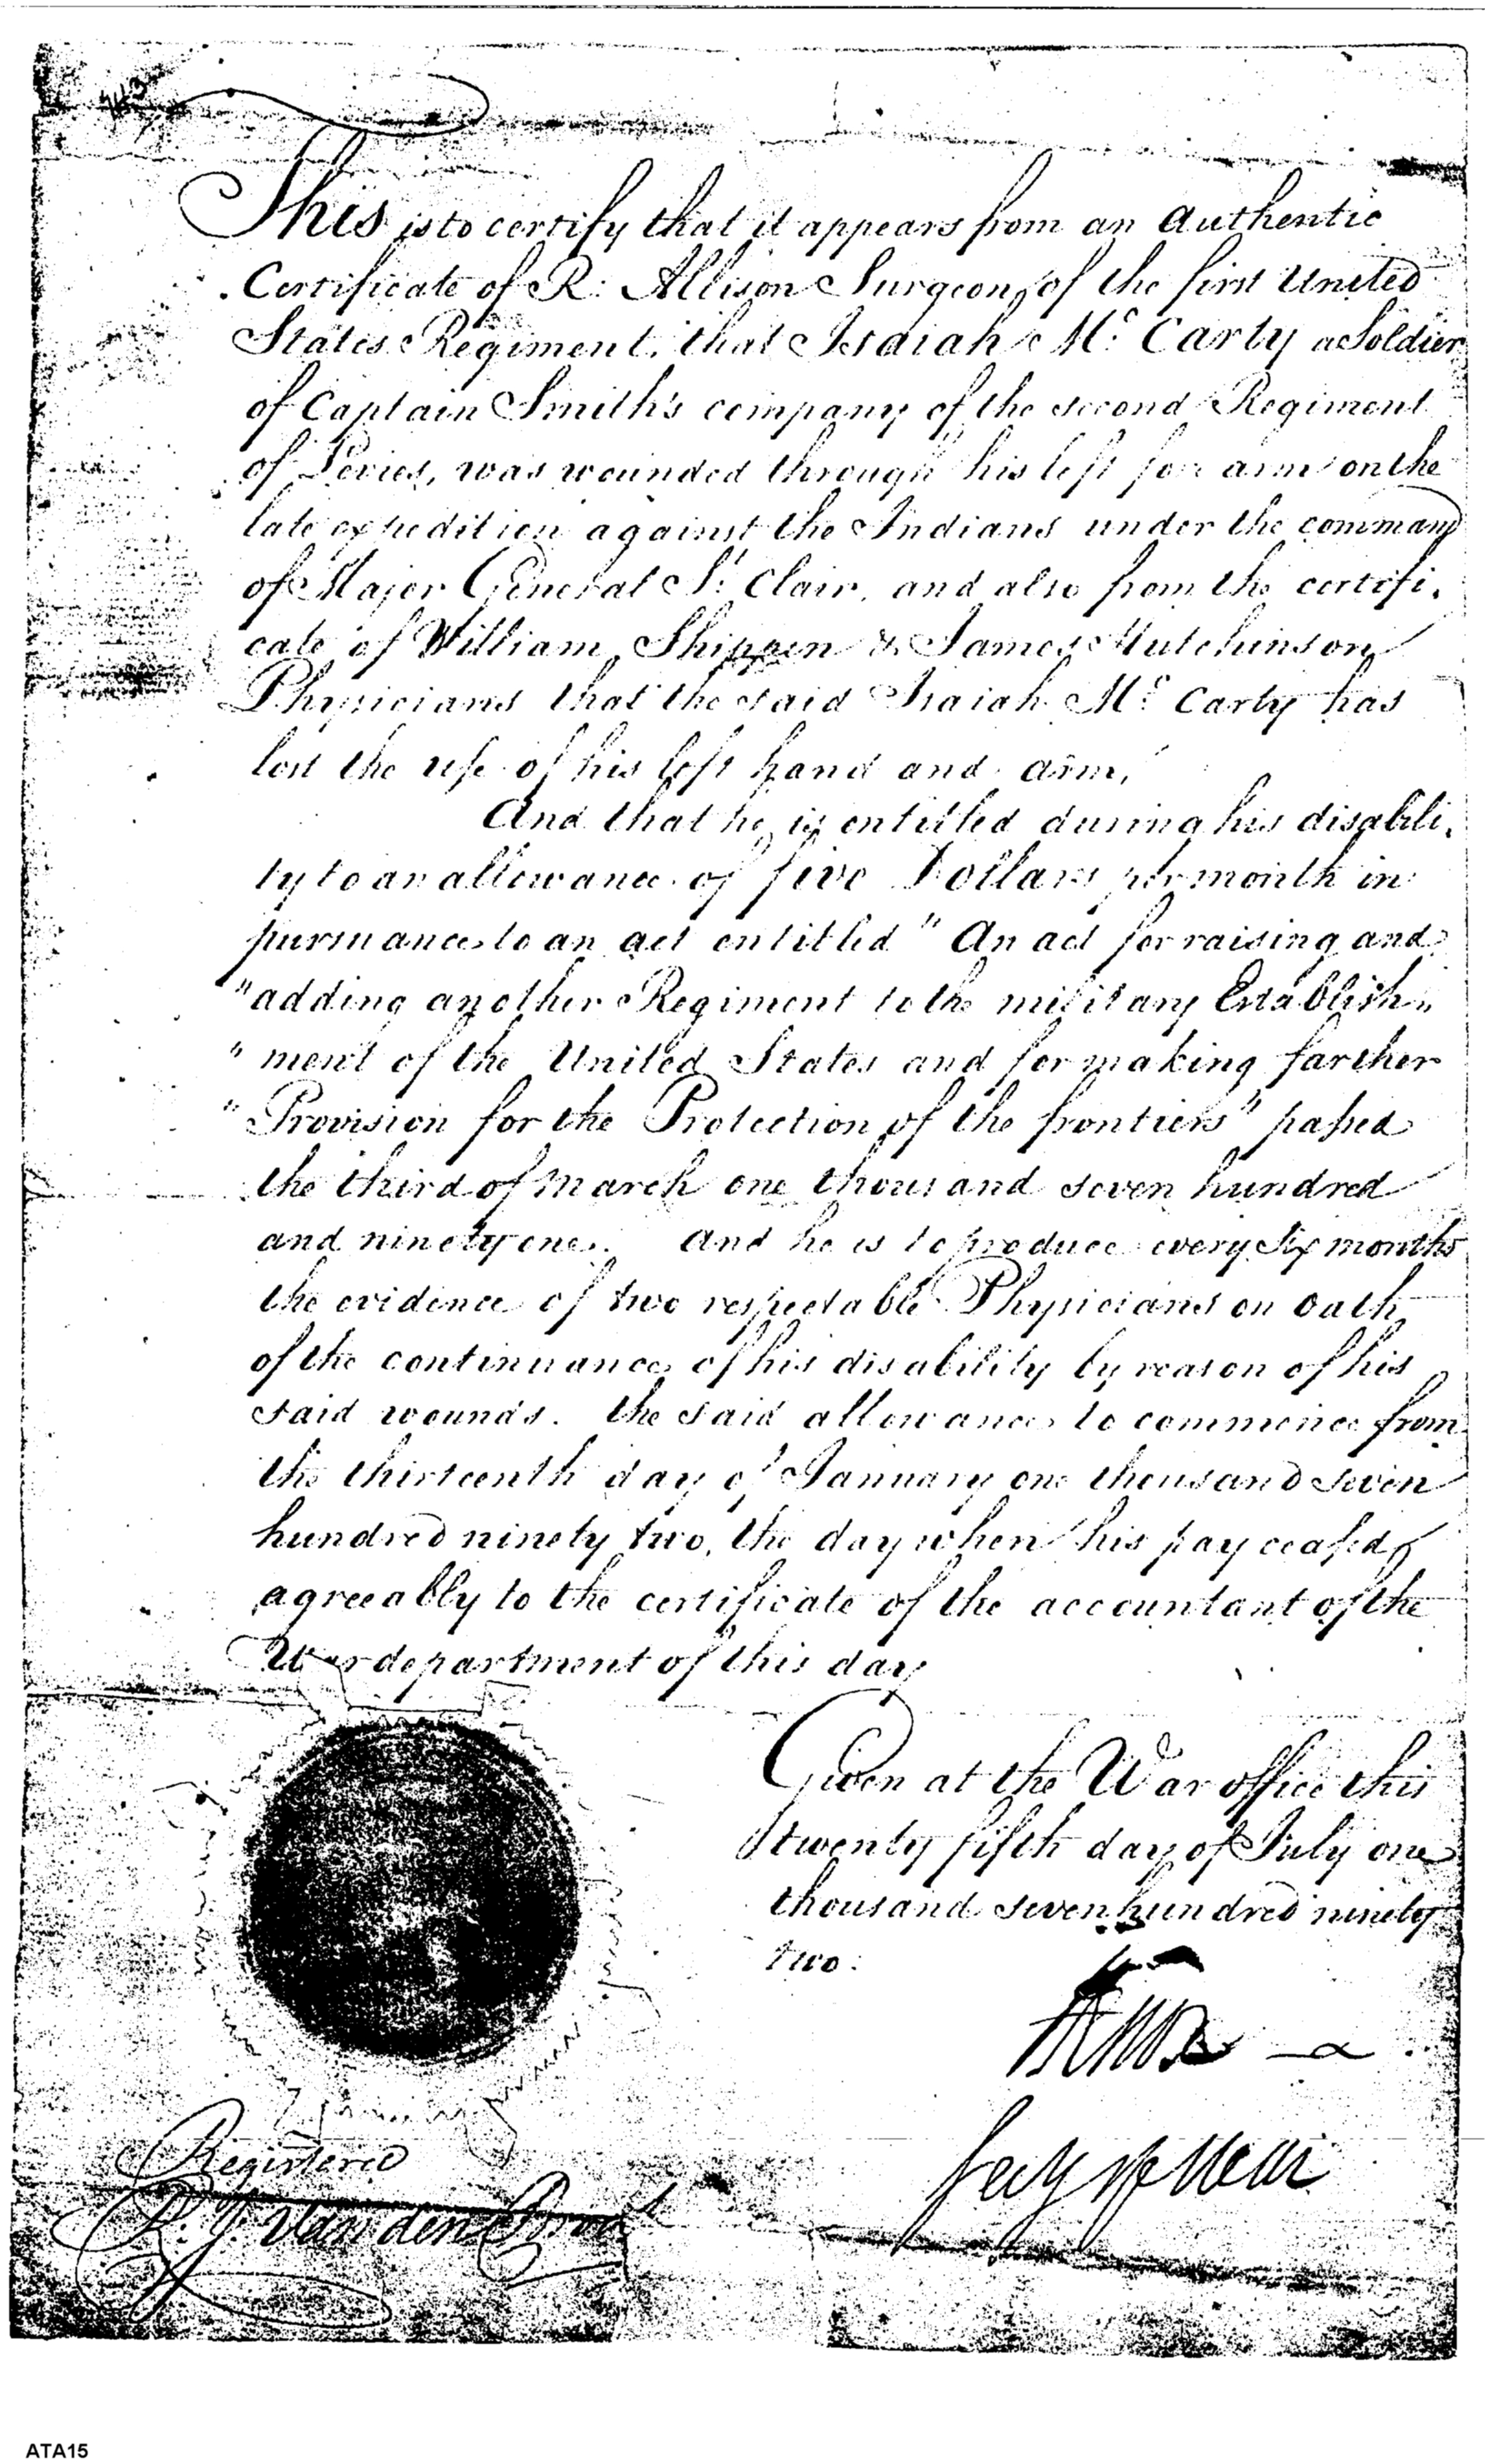 This is to certify that it appears from an authentic
Certificate of R: Allison Surgeon of the first United
States Regiment, that Isaiah Mc. Carty a Soldier
of Captain Smith's company of the second Regiment
of Levies, was wounded through his left fore arm on the
late expedition against the Indians under the command
of Major General St. Clair, and also from the certifi.
cate of William Shippen & James Hutchinson
Physicians that the said Isaiah Mc. Carty has
lost the use of his left hand and arm,
And that he is entitled during his disabili.
ty to an allowance of five Dollars per month in
pursuance to an act entitled "An act for raising and
"adding another Regiment to the military Establish,,
"ment of the United States and for making farther
"Provision for the Protection of the frontiers" passed
the third of March one thousand seven hundred
and ninety one. And he is to produce every six months
the evidence of two respectable Physicians on oath
of the continuance of his disability by reason of his
said wounds. the said allowance to commence from
the thirteenth day of January one thousand seven
hundred ninety two, the day when his pay ceased
agreeably to the certificate of the accountant of the
War department of this day
Given at the War office this
twenty fifth day of July one
thousand seven hundred ninety
two:
HKnox
Secy of War
Registered
R. J. Van den Broek
ATA15